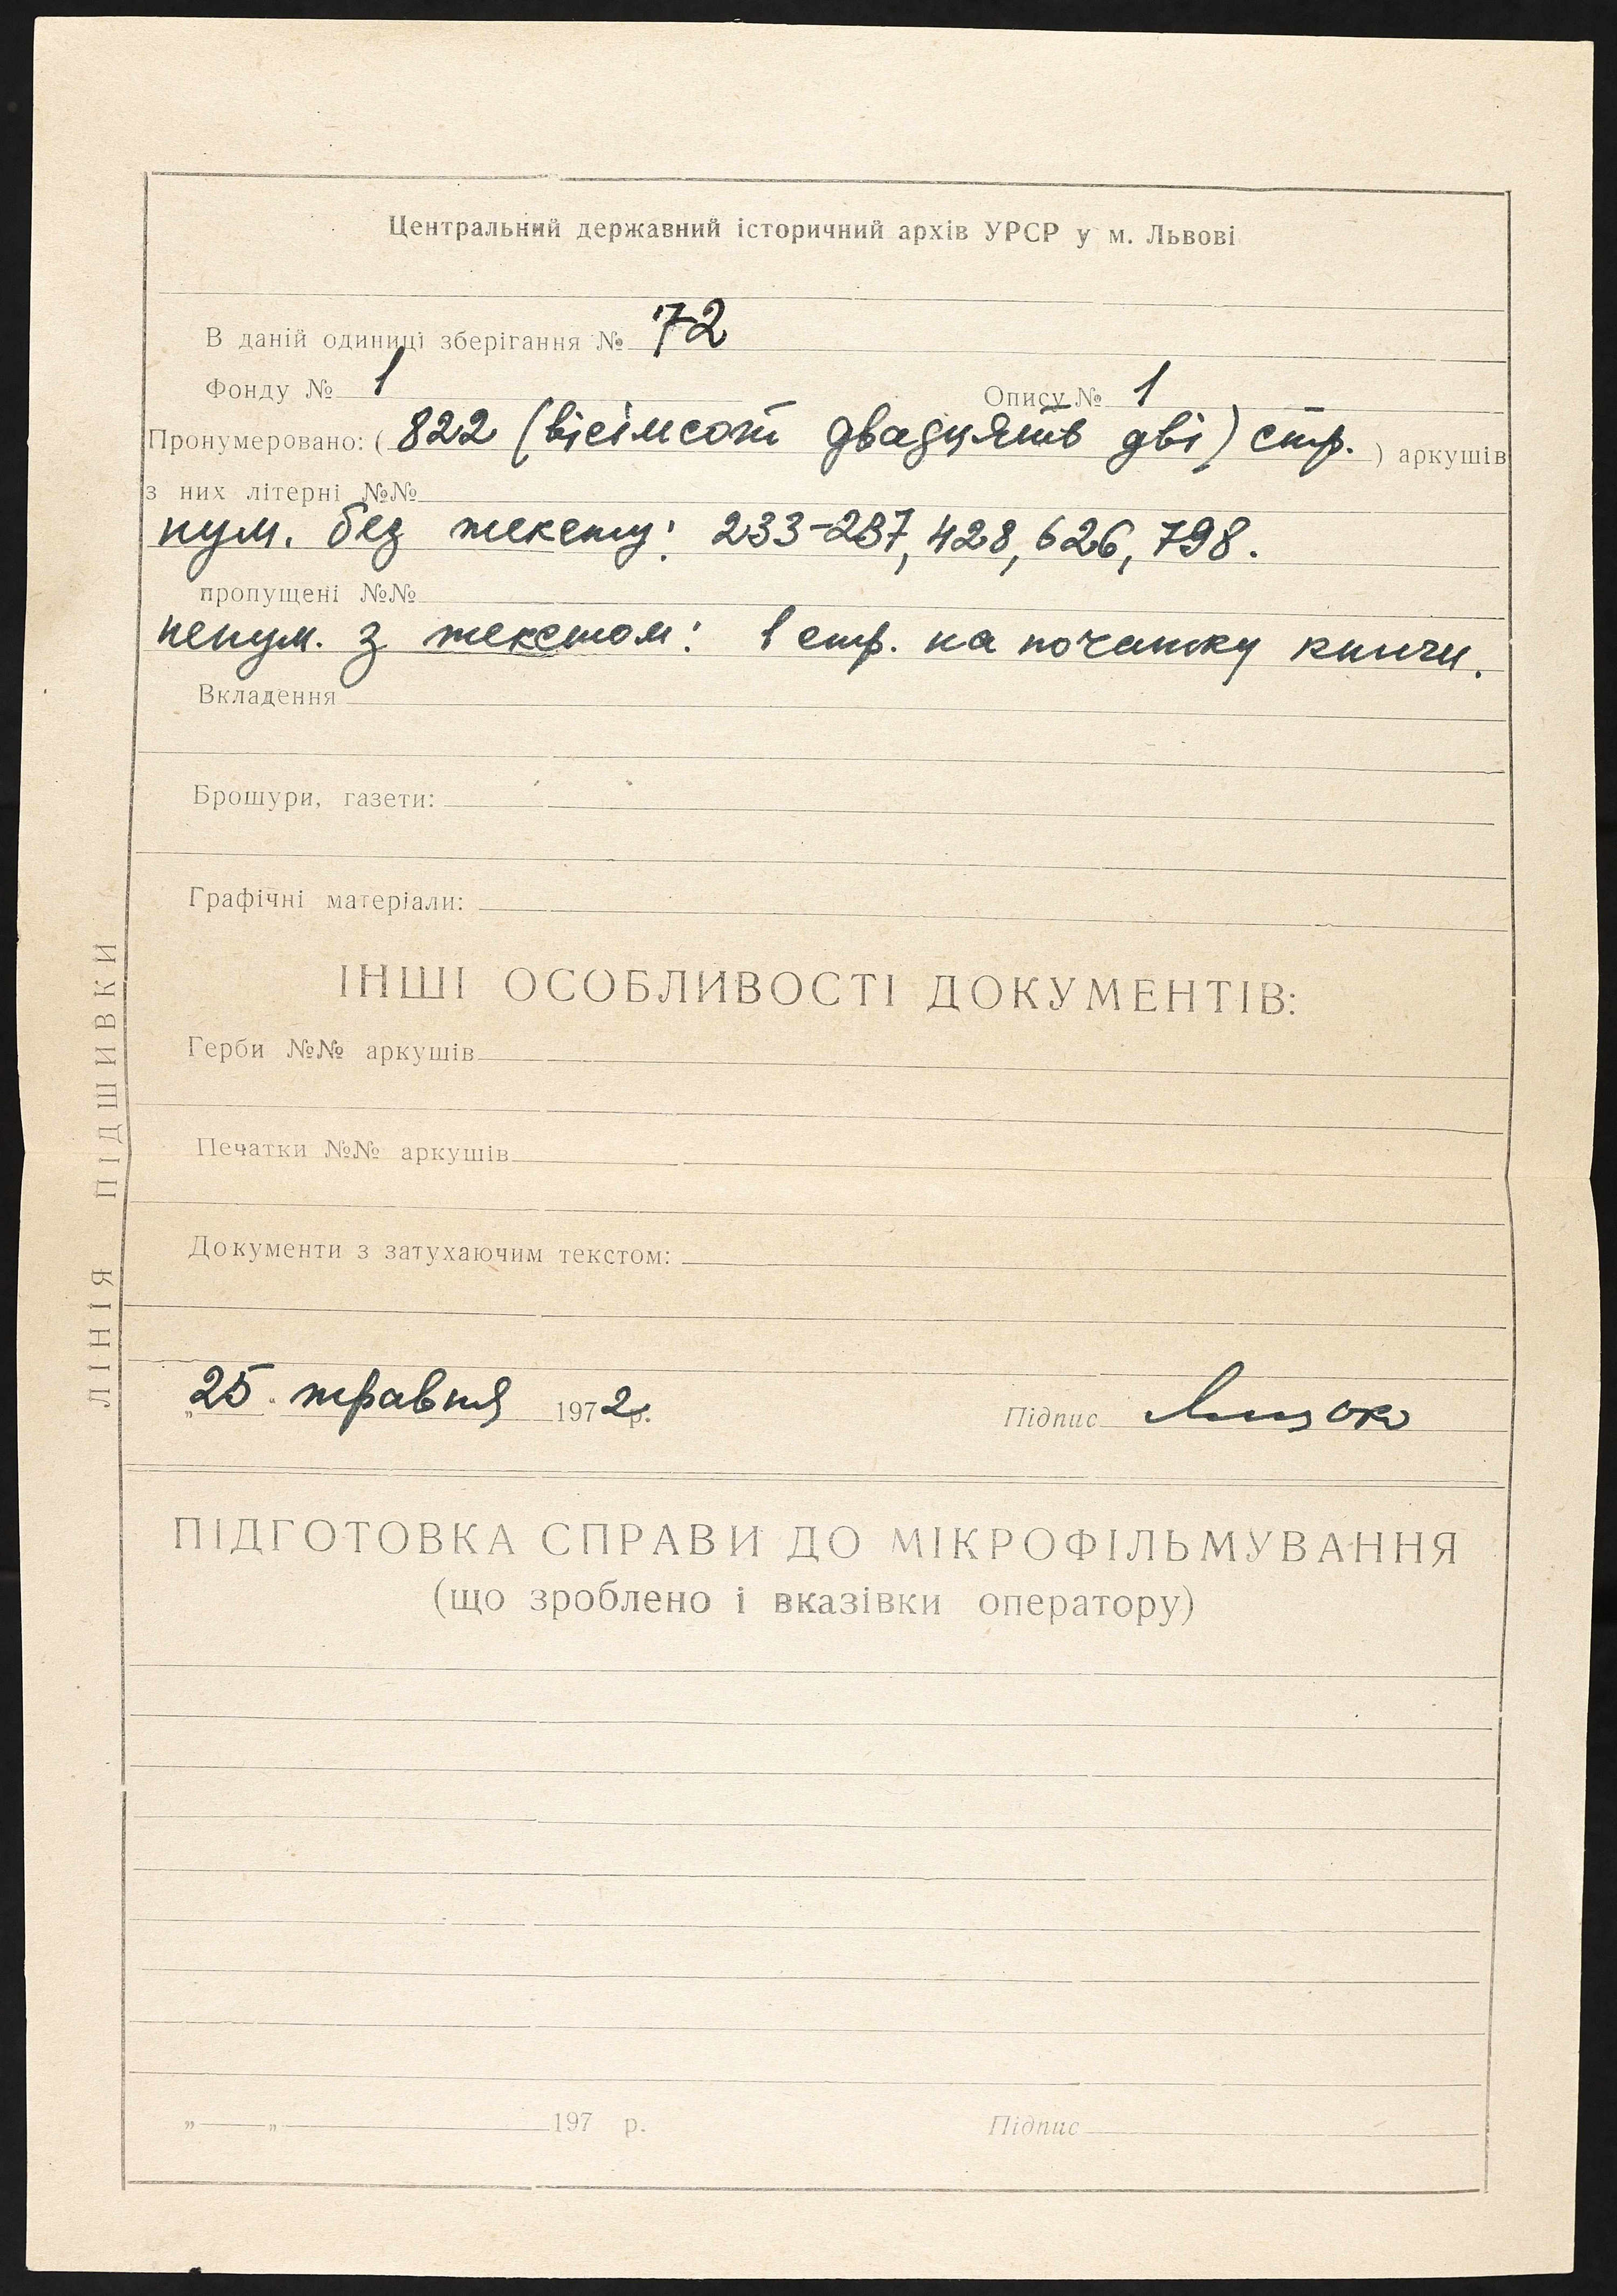 Центральний державний історичний архів УРСР у м. Львові
В даній одиниці зберігання № 72
Фонду № 1 Опису № 1
Пронумеровано: ( 822 (вісімсот двадцять дві) стр. ) аркушів
з них літерні №№
нум. без тексту: 233-237, 428, 626, 798.
пропущені №№
ненум. з текстом: 1 стр. на початку книги.
Вкладення
Брошури, газети:
Графічні матеріали:
ІНШІ ОСОБЛИВОСТІ ДОКУМЕНТІВ:
Герби №№ аркушів
Печатки №№ аркушів
Документи з затухаючим текстом:
„25" травня 1972 р. Підпис
ПІДГОТОВКА СПРАВИ ДО МІКРОФІЛЬМУВАННЯ
(що зроблено і вказівки оператору)
„ " 197 р. Підпис
ЛІНІЯ ПІДШИВКИ